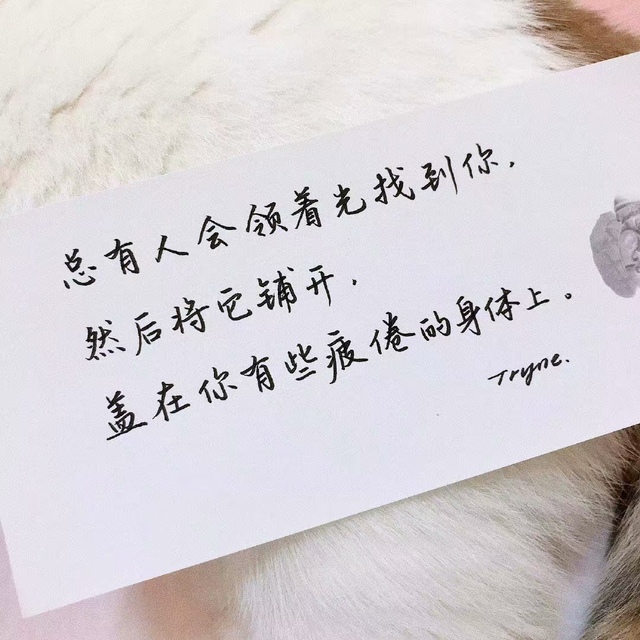 总有人会领着光找到你,
然后将它铺开,
盖在你有些疲倦的身体上。
Tryne.